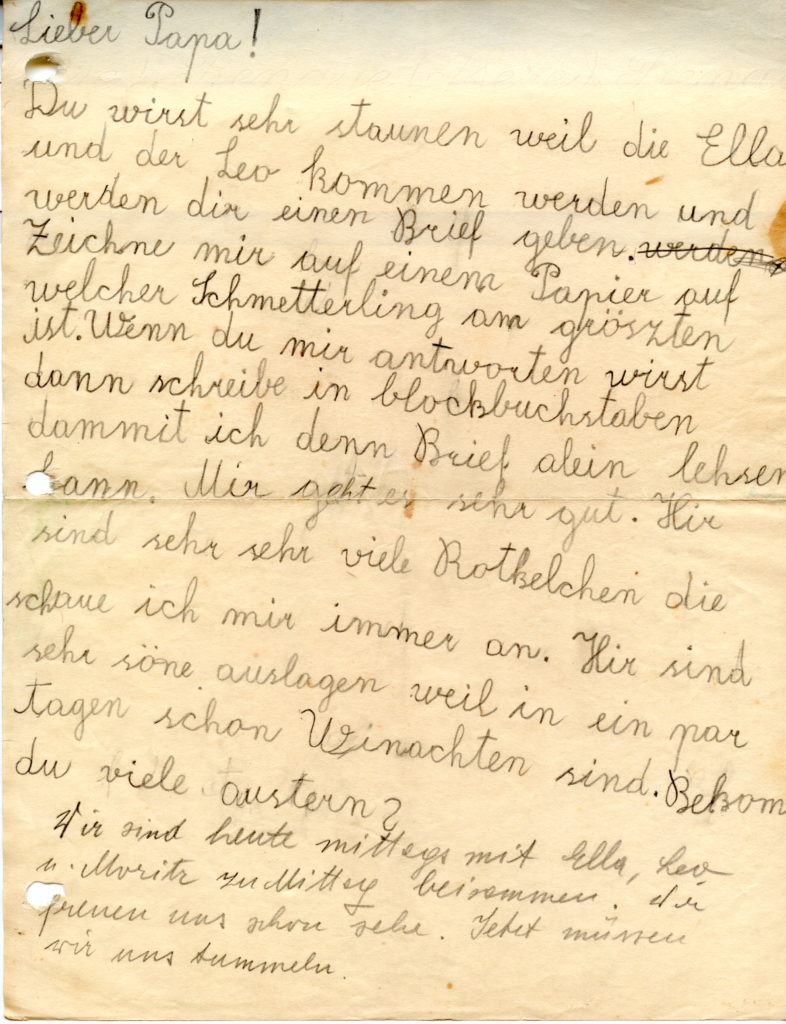 Lieber Papa!
Du wirst sehr staunen weil die Ella
und der Leo kommen werden und
werden dir einen Brief geben. werden
Zeichne mir auf einem Papier auf
welcher Schmetterling am gröszten
ist. Wenn du mir antworten wirst
dann schreibe in blockbuchstaben
dammit ich denn Brief alein lehsen
kann. Mir geht es sehr gut. Hir
sind sehr sehr viele Rotkelchen die
schaue ich mir immer an. Hir sind
sehr söne auslagen weil in ein par
tagen schon Weinachten sind. Bekom
du viele austern?
Wir sind heute mittags mit Ella, Leo
u. Moritz zu Mittag beisammen. Wir
freuen uns schon sehr. Jetzt müssen
wir uns tummeln.